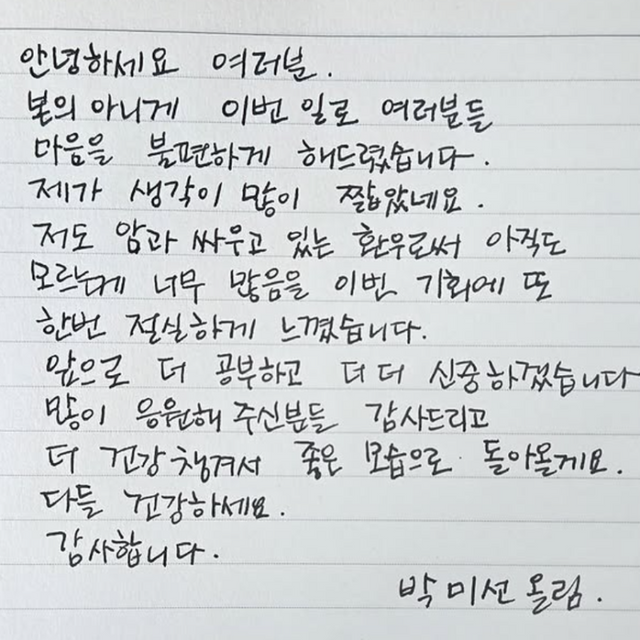 안녕하세요 여러분.
본의 아니게 이번 일로 여러분들
마음을 불편하게 해드렸습니다.
제가 생각이 많이 짧았네요.
저도 암과 싸우고 있는 환우로써 아직도
모르는게 너무 많음을 이번 기회에 또
한번 절실하게 느꼈습니다.
앞으로 더 공부하고 더 더 신중하겠습니다
많이 응원해 주신분들 감사드리고
더 건강 챙겨서 좋은 모습으로 돌아올게요.
다들 건강하세요.
감사합니다.
박미선 올림.